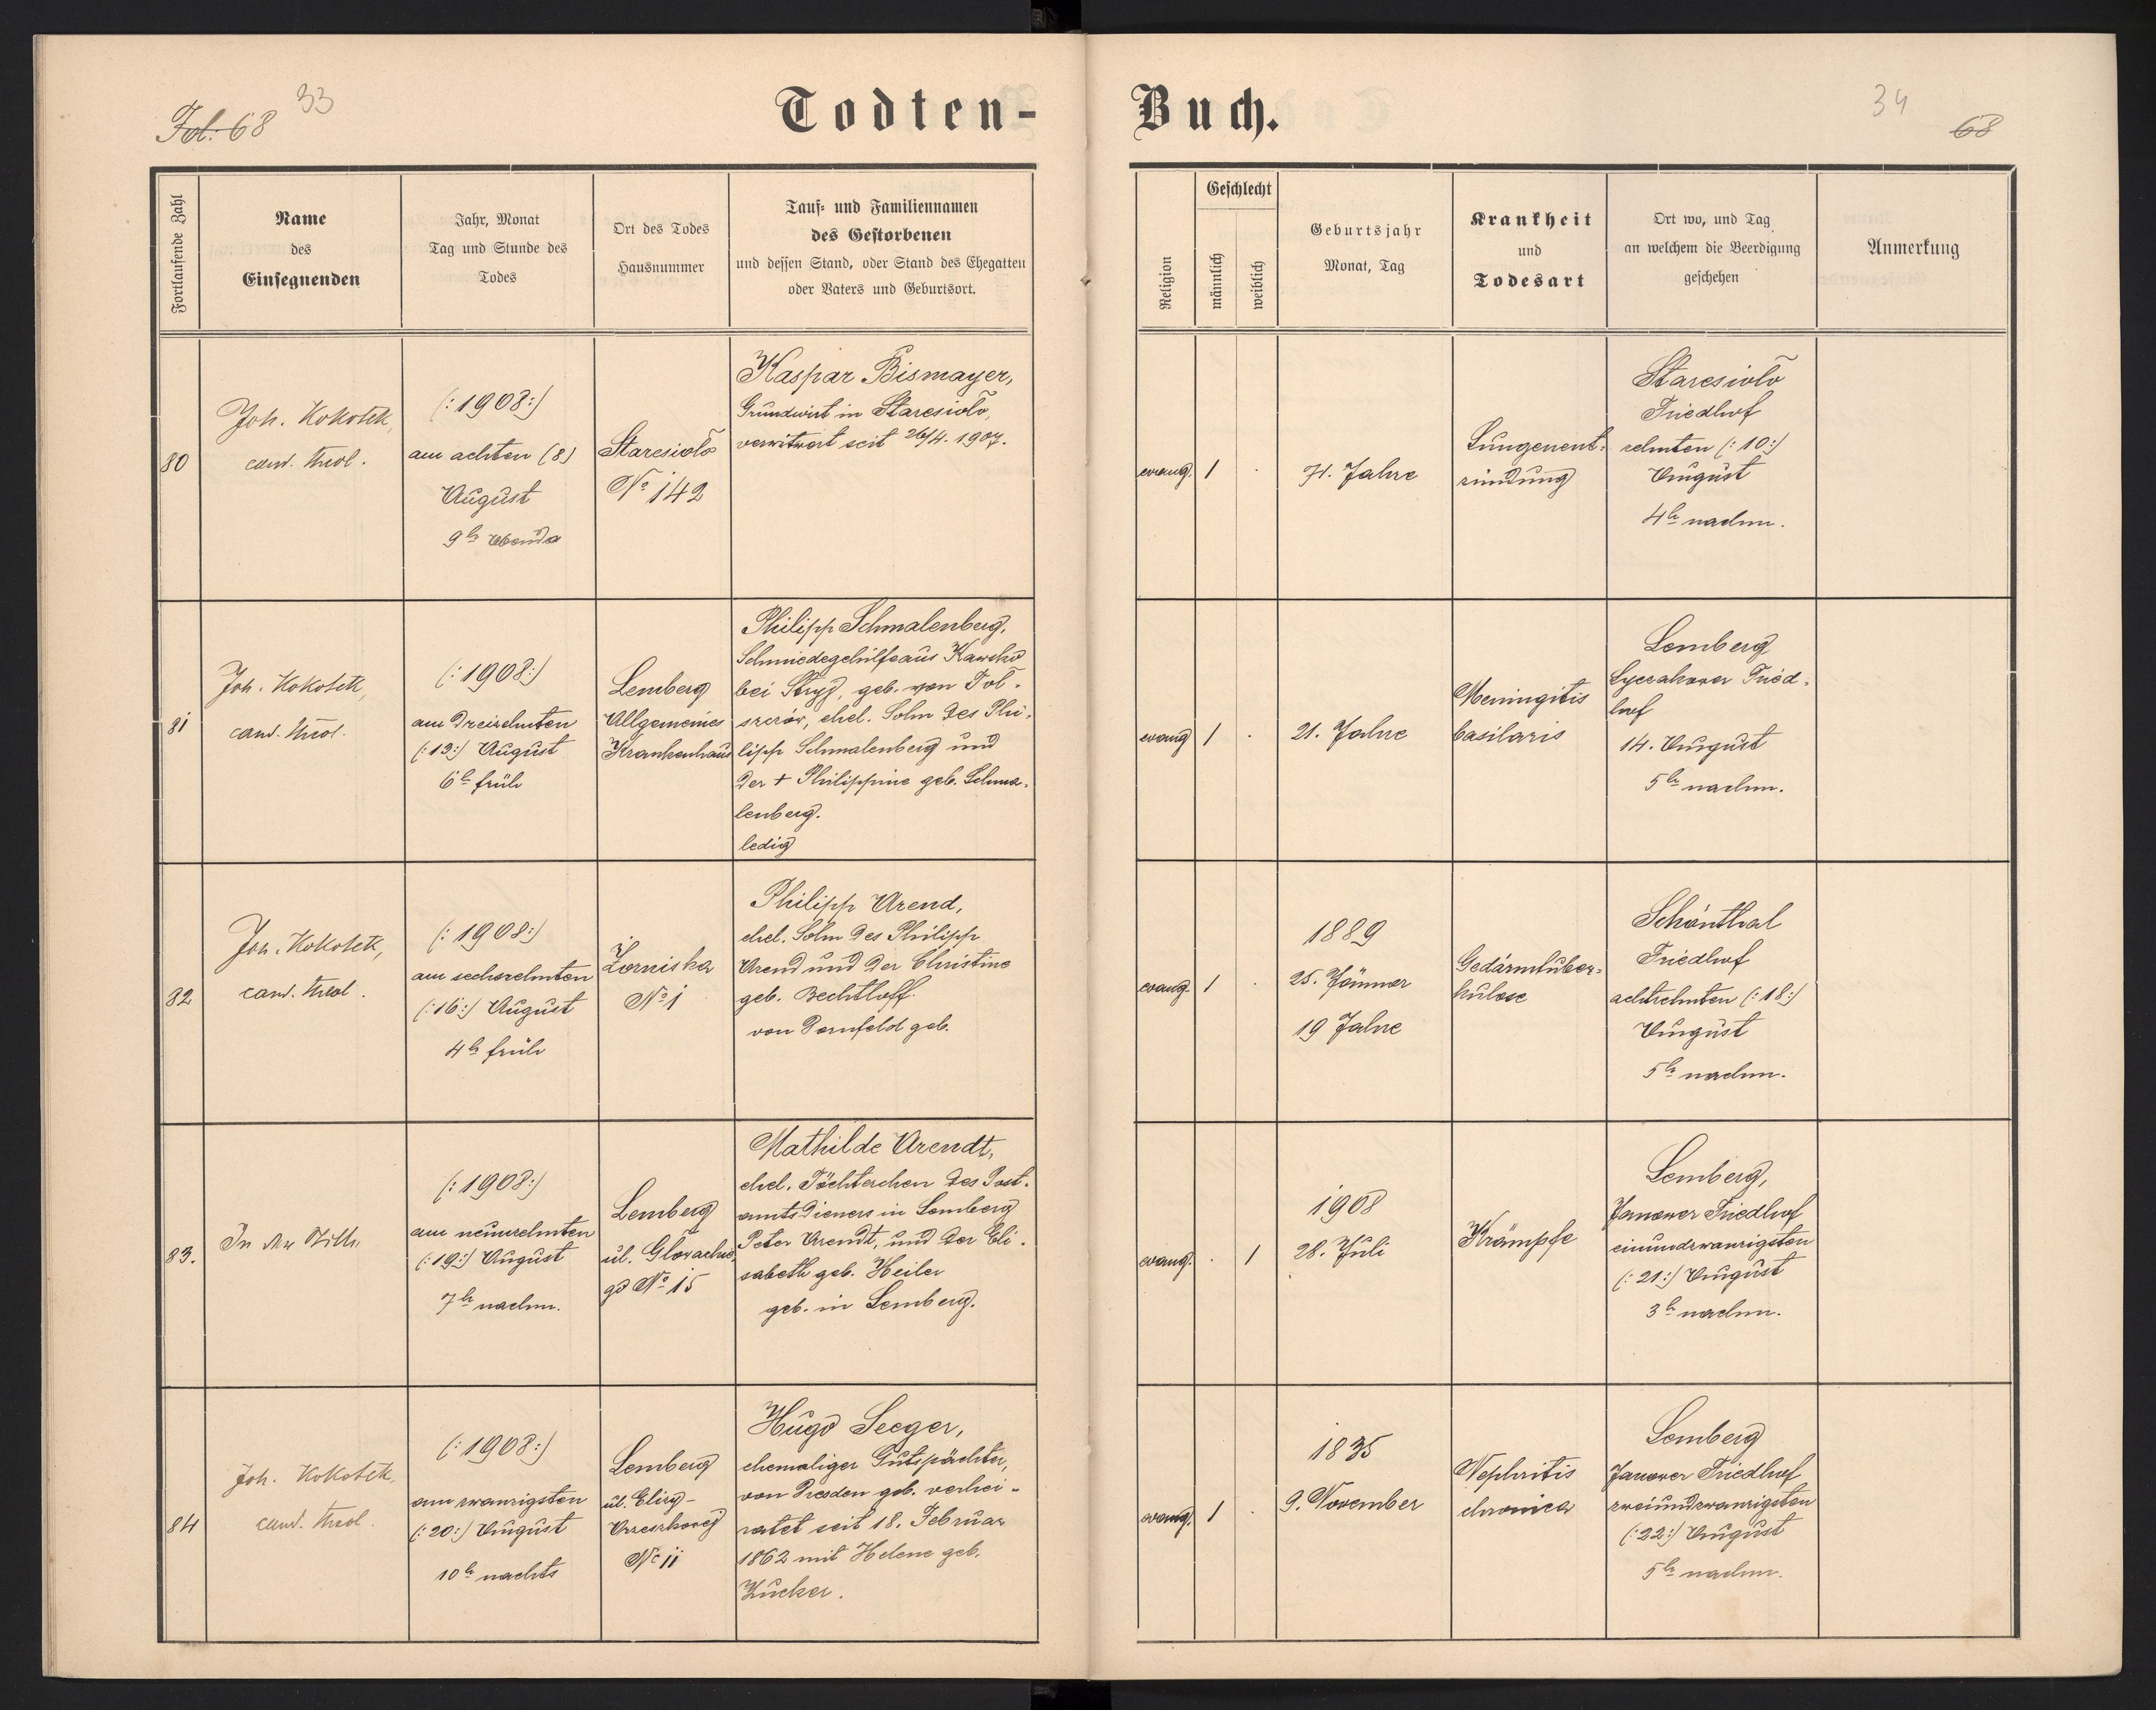 Fol. 68
33
Todten-
Buch.
34
68
Fortlaufende Zahl
Name
des
Einsegnenden
Jahr, Monat
Tag und Stunde des
Todes
Ort des Todes
Hausnummer
Tauf- und Familiennamen
des Gestorbenen
und dessen Stand, oder Stand des Ehegatten
oder Vaters und Geburtsort.
Religion
Geschlecht
männlich
weiblich
Geburtsjahr
Monat, Tag
Krankheit
und
Todesart
Ort wo, und Tag
an welchem die Beerdigung
geschehen
Anmerkung
80
Joh. Kokotek,
cand. theol.
(:1908:)
am achten (8)
August
9h Abends
Staresioło
No 142
Kaspar Bismayer,
Grundwirt in Staresioło,
verwitwet seit 26/4. 1907.
evang.
1
.
71. Jahre
Lungenent-
zündung
Staresioło
Friedhof
zehnten (:10:)
August
4h nachm.
81
Joh. Kokotek,
cand. theol.
(:1908:)
am dreizehnten
(:13:) August
6h früh
Lemberg
Allgemeines
Krankenhaus
Philipp Schmalenberg,
Schmiedegehülfe aus Kawsko
bei Stryj, geb. von Fol-
szczów, ehel. Sohn des Phi-
lipp Schmalenberg und
der + Philippine geb. Schma-
lenberg.
ledig
evang
1
.
21. Jahre
Meningitis
basilaris
Lemberg
Lyczakower Fried-
hof
14. August
5h nachm.
82
Joh. Kokotek,
cand. theol.
(:1908:)
am sechszehnten
(:16:) August
4h früh
Żorniska
No 1
Philipp Arend,
ehel. Sohn des Philipp
Arend und der Christine
geb. Bechtloff
von Dornfeld geb.
evang.
1
.
1889
25. Jänner
19 Jahre
Gedärmtuber-
kulose
Schönthal
Friedhof
achtzehnten (:18:)
August
5h nachm.
83.
(:1908:)
am neunzehnten
(:19:) August
7h nachm.
Lemberg
ul. Głowackie-
go No 15
Mathilde Arendt,
ehel. Töchterchen des Post-
amtsdieners in Lemberg
Peter Arendt, und der Eli-
sabeth geb. Heiler
geb. in Lemberg.
evang.
.
1
1908
28. Juli
Krämpfe
Lemberg,
Janower Friedhof
einundzwanzigsten
(:21:) August
3h nachm.
84
Joh. Kokotek,
cand. theol.
(:1908:)
am zwanzigsten
(:20:) August
10h nachts
Lemberg
ul. Elizy-
Orzeszkowej
No 11
Hugo Seeger,
ehemaliger Gutspächter,
von Dresden geb. verhei-
ratet seit 18. Februar
1862 mit Helene geb.
Zucker.
evang.
1
.
1835
9. November
Nephritis
chronica
Lemberg
Janower Friedhof
zweiundzwanzigsten
(:22:) August
5h nachm.